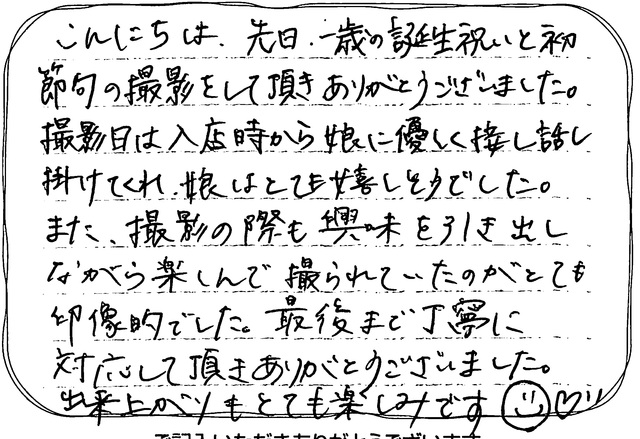 こんにちは、先日、一歳の誕生祝いと初
節句の撮影をして頂きありがとうございました。
撮影日は入店時から娘に優しく接し話し
掛けてくれ、娘はとても嬉しそうでした。
また、撮影の際も興味を引き出し
ながら楽しんで撮られていたのがとても
印像的でした。最後まで丁寧に
対応して頂きありがとうございました。
出来上がりもとても楽しみです
ご記入いただきありがとうございます